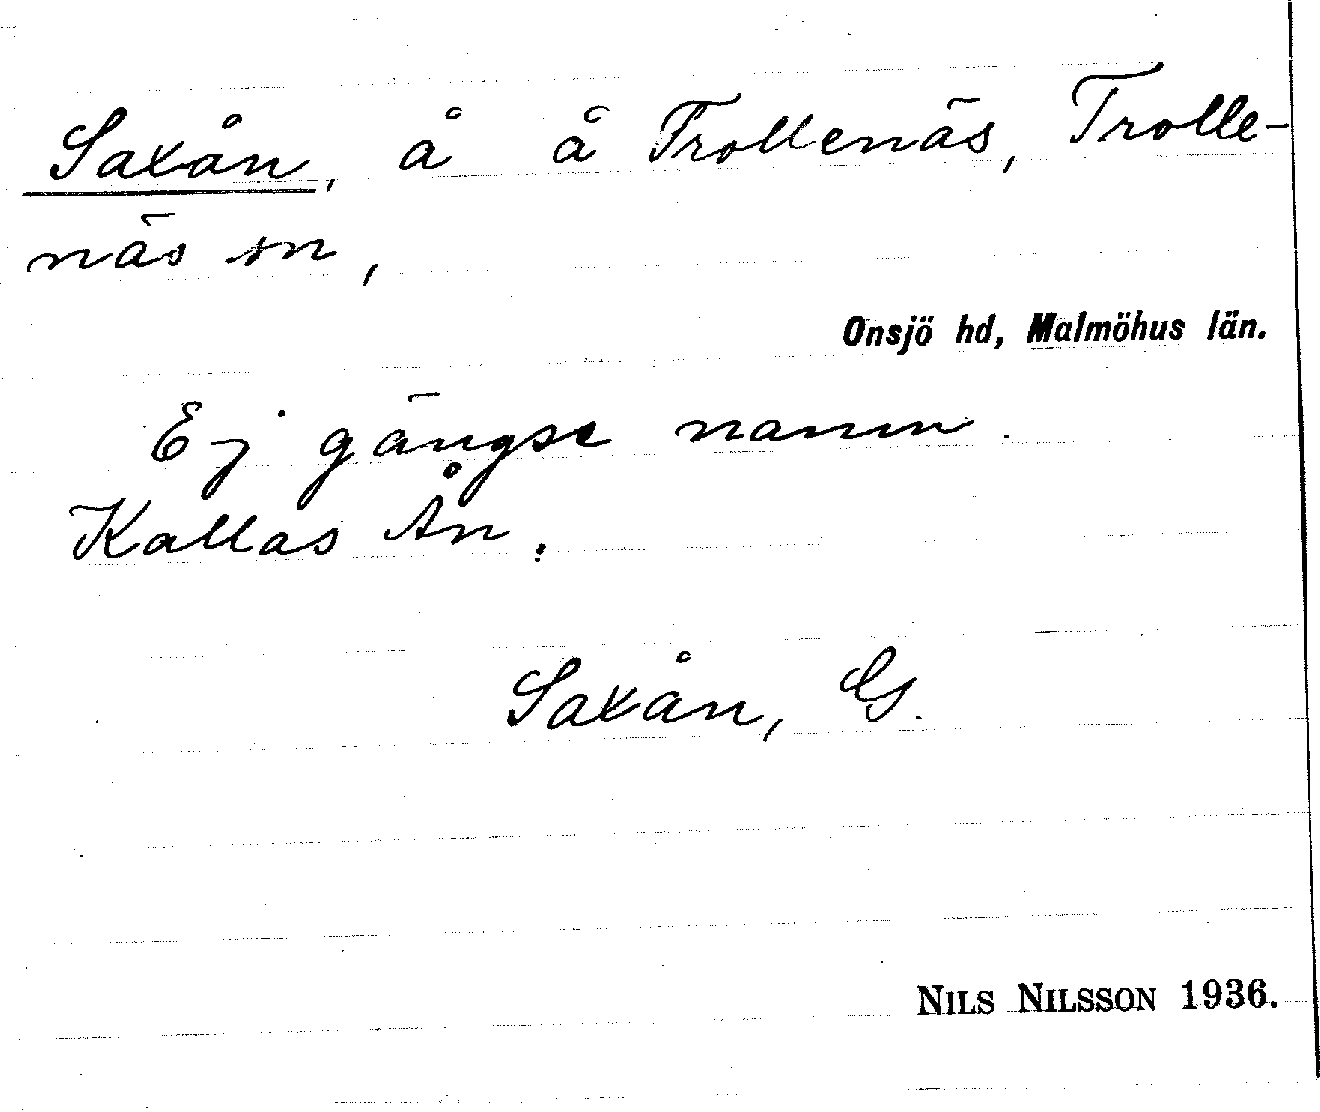 Saxån, å å Trollenäs, Trolle-
näs sn,
Onsjö hd, Malmöhus län.
Ej gängse namn.
Kallas Ån.
Saxån, Gs.
NILS NILSSON 1936.